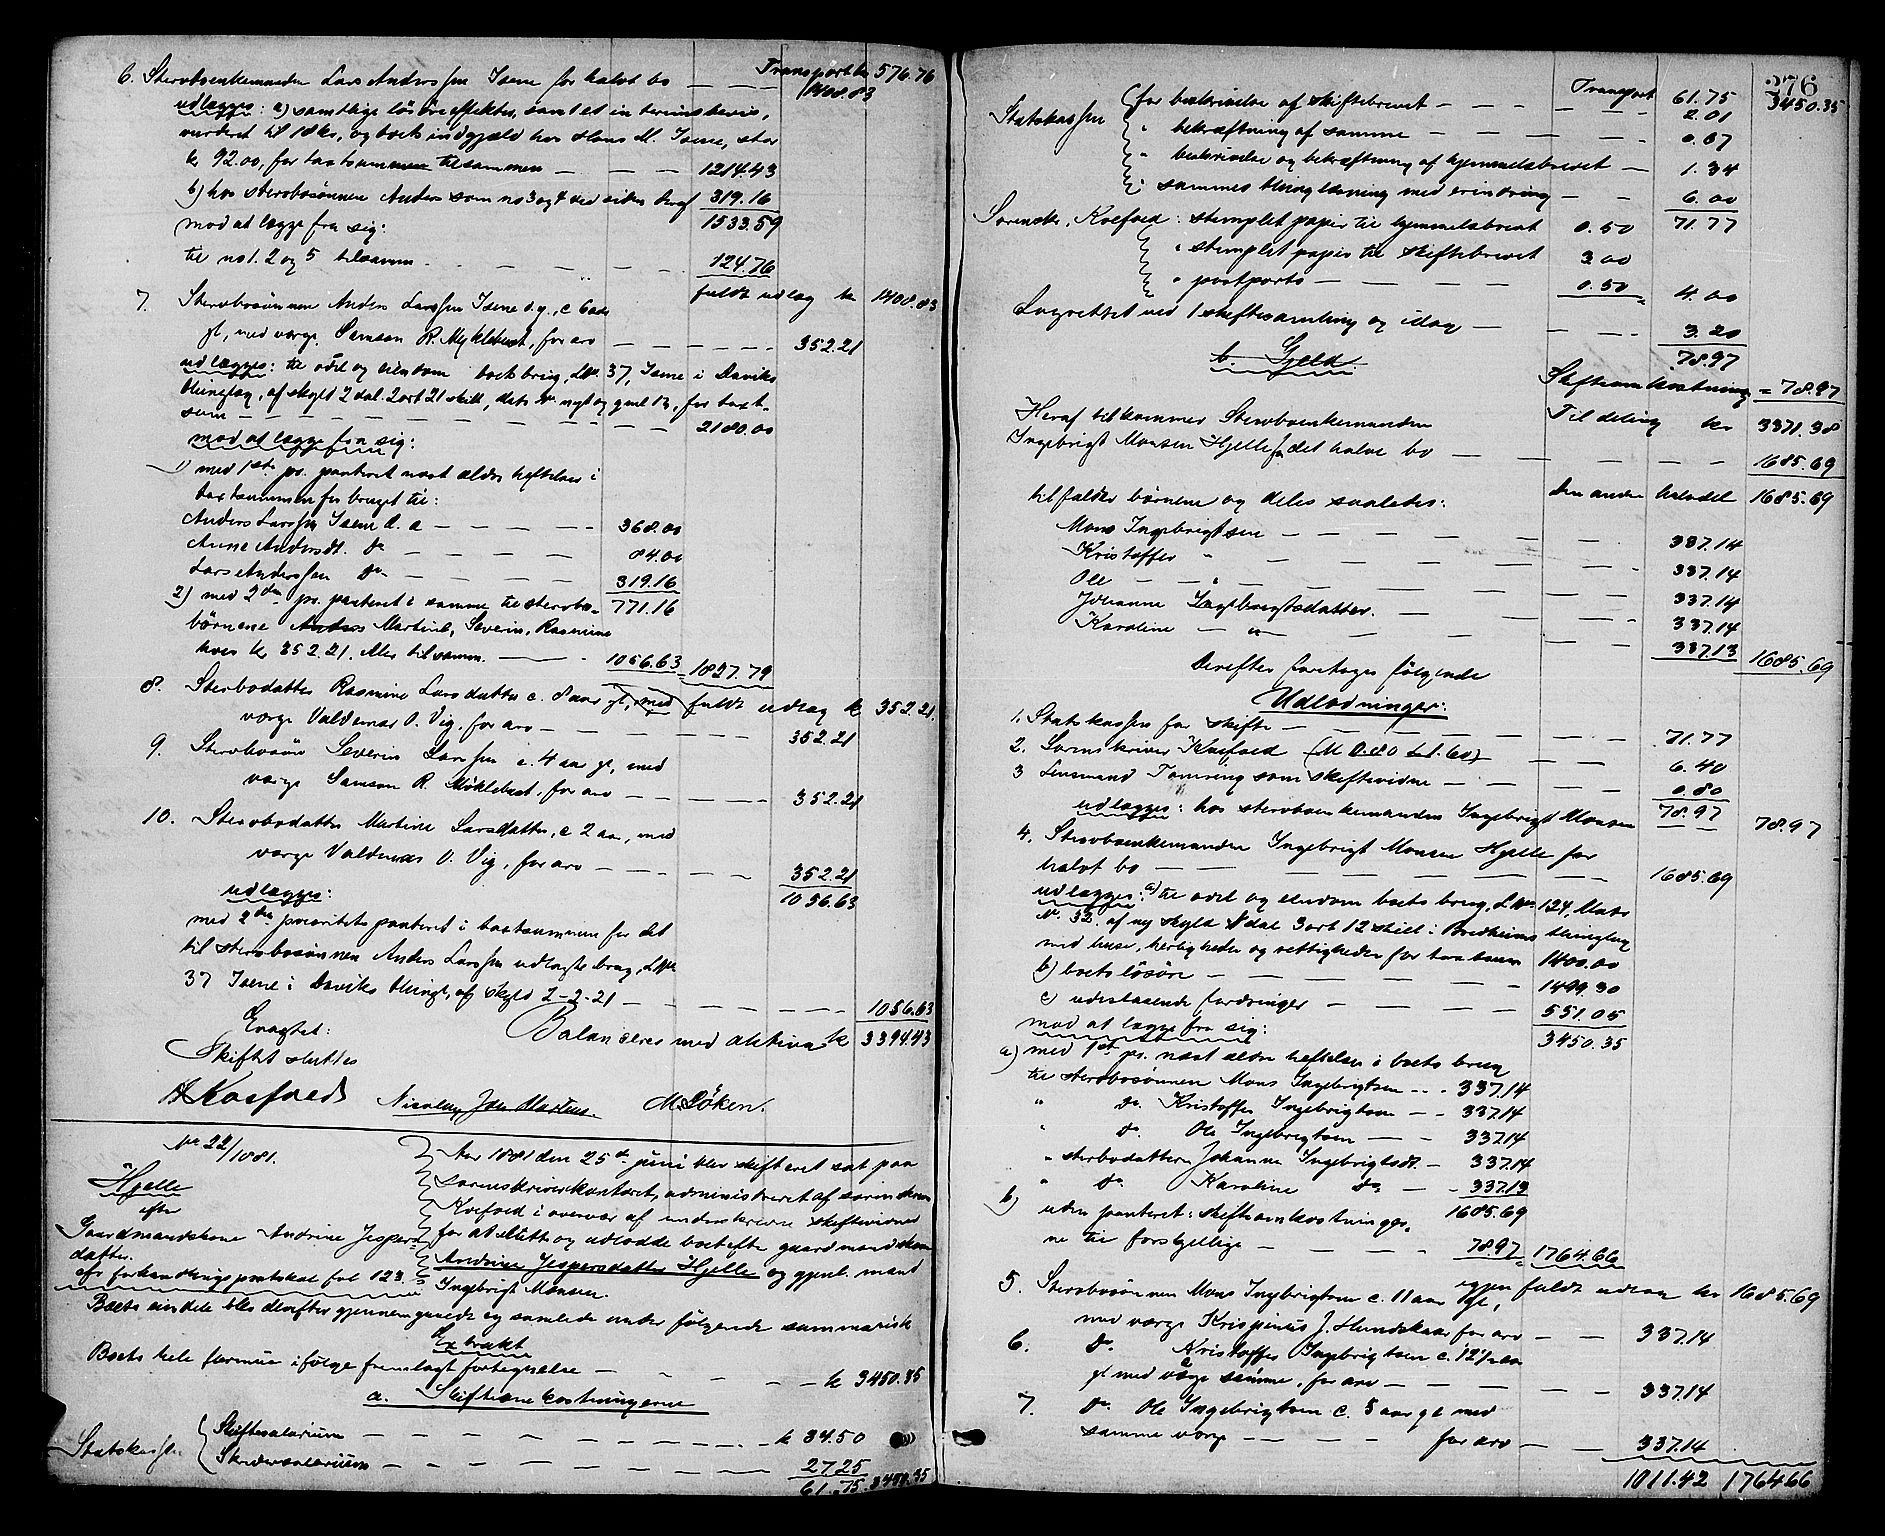 Transport kr 576.76
6. Sterboenkemanden Lars Anderssen Isene for halvt bo — — — 1408.83
udlægges: a) samtlige løsøreeffekter, samt et interimsbevis,
vurderet til 18 kr, og boets indgjæld hos Hans M. Isene, stor
kr 92.00, for taxtsummen tilsammen — — — 1214.43
b) hos sterbosønnen Anders som no 3 og 4 ved siden heraf 319.16
mod at lægge fra sig: 1533.59
til no 1. 2 og 5 tilsamm. — — — — 124.76
fuldt udlæg kr 1408.83
7. Sterbosønnen Anders Larssen Isene d.y., c 6 aar
gl, med værge Samson R. Myklebust, for arv — — — — 352.21
udlægges: til odel og eiendom boets brug, LNo 37, Isene i Daviks
thinglag, af skyld 2 dal. 2 ort 21 skill, dets nyt og gml No, for taxt-
sum — — — — — 2180.00
mod at lægge fra sig:
1) med 1ste pr. panteret næst ældre heftelser i
taxtsummen for bruget til:
Anders Larssen Isene d. æ — — — 368.00
Anne Andersdt. do — — — 84.00
Lars Anderssen do — — — 319.16
2) med 2den pr. panteret i samme til sterbo- 771.16
børnene Martine, Severin, Rasmine
hver kr 352.21. Alle tilsamm. — — 1056.63 1827.79
fuldt udlæg kr 352.21.
8. Sterbodatter Rasmine Larsdatter c. 8 aar gl, med
værge Valdemar O. Vig, for arv — — — — 352.21
9. Sterbosøn Severin Larssen c. 4 aar gl, med
værge Samson R. Myklebust, for arv — — — — 352.21
10. Sterbodatter Martine Larsdatter, c 2 aar, med
værge Valdemar O. Vig, for arv — — — — 352.21
udlægges: 1056.63
med 2den prioritets panteret i taxtsummen for det
til sterbosønnen Anders Larssen udlagte brug, LNo
37 Isene i Daviks thingl, af skyld 2-2-21 — — — — 1056.63
Balanceres med aktiva kr 3394.43
Skiftet sluttes
Koefoed M. Löken.
No 22/1881.
Hjelle
efter
Gaardmandskone Andrine Jespers-
datter.
cfr forhandlingsprotokol fol 123.
Aar 1881 den 25de juni blev skifteret sat paa
sorenskriverkontoret, administreret af sorenskriver
Koefoed i overvær af underskrevne skiftevidner
for at slutte og udlodde boet efter gaardmandskone
Andrine Jespersdatter Hjelle og gjenl. mand
Ingebrigt Monsen.
Boets eiendele blev derefter gjennemgaaede og samlede under følgende summarisk
Extrakt
Boets hele formue ifølge fremlagt fortegnelse — — — — kr 3450.35
a. Skifteomkostningerne
Statskassen
Skiftesalarium — — — — kr 34.50
Skriversalarium — — — — 27.25
61.75. 3450.35
276
Transport 61.75 3450.35
Statskassen
for beskrivelse af skiftebrevet — — — 2.01
" bekræftning af samme — — — 0.67
" beskrivelse og bekræftning af hjemmelsbrevet — 1.34
" sammes thinglæsning med erindring — — 6.00
Sorenskr. Koefoed: stemplet papir til hjemmelsbrevet 0.50 71.77
" stemplet papir til skiftebrevet 3.00
" postporto — — — 0.50 4.00
Lagrettet ved 1 skiftesamling og idag — — — 3.20
b. Gjeld. 78.97
Skifteomkostninger = 78.97
Til deling kr 3371.38
Heraf tilkommer Sterboenkemanden
Ingebrigt Monsen Hjelle for det halve bo — — — — 1685.69
Den anden halvdel 1685.69
tilfalder børnene og deles saaledes:
Mons Ingebrigtsen — — — — 337.14
Kristoffer " — — — — 337.14
Ole — — " — — — — 337.14
Johanne Ingebrigtsdatter. — — 337.14
Karoline — " — — — — 337.13 1685.69
Derefter foretages følgende
Udlodninger:
1. Statskassen for skifte — — — — 71.77
2. Sorenskriver Koefoed — — 6.40
3 Lensmand som skiftevidne — — — 0.80
udlægges: hos sterboenkemanden Ingebrigt Monsen 78.97 78.97
4. Sterboenkemanden Ingebrigt Monsen Hjelle for
halvt bo — — — — — 1685.69
udlægges: a) til odel og eiendom boets brug, LNo 124, Mats
No 32. af ny skyld 1 dal 3 ort 12 skill i Bredheims thinglag
med huse, herligheder og rettigheder for taxtsum 1400.00
b) boets løsøre — — — — 1499.30
c) udestaaende fordringer — — — 551.05
mod at lægge fra sig: 3450.35
a) med 1ste pr. næst ældre heftelser i boets brug
til sterbosønnen Mons Ingebrigtsen — — 337.14
" do. Kristoffer Ingebrigtsen — — 337.14
" do. Ole Ingebrigtsen — — 337.14
" sterbodatteren Johanne Ingebrigtsdt. — 337.14
" do. Karoline do — — 337.13
b) uden panteret: skifteomkostninger- 1685.69
ne til forskjellige — — — — 78.97 1764.66
igjen fuldt udlæg kr 1685.69
5. Sterbosønnen Mons Ingebrigtsen c. 11 aar gl,
med værge Krispinus J. Hundskaar for arv — — 337.14
6. do. Kristoffer Ingebrigtsen c. 12 1/2 aar
gl med værge samme, for arv — — — — 337.14
7. do. Ole Ingebrigtsen c. 5 aar gl med
samme værge — — — — for arv — — 337.14
1011.42 1764.66